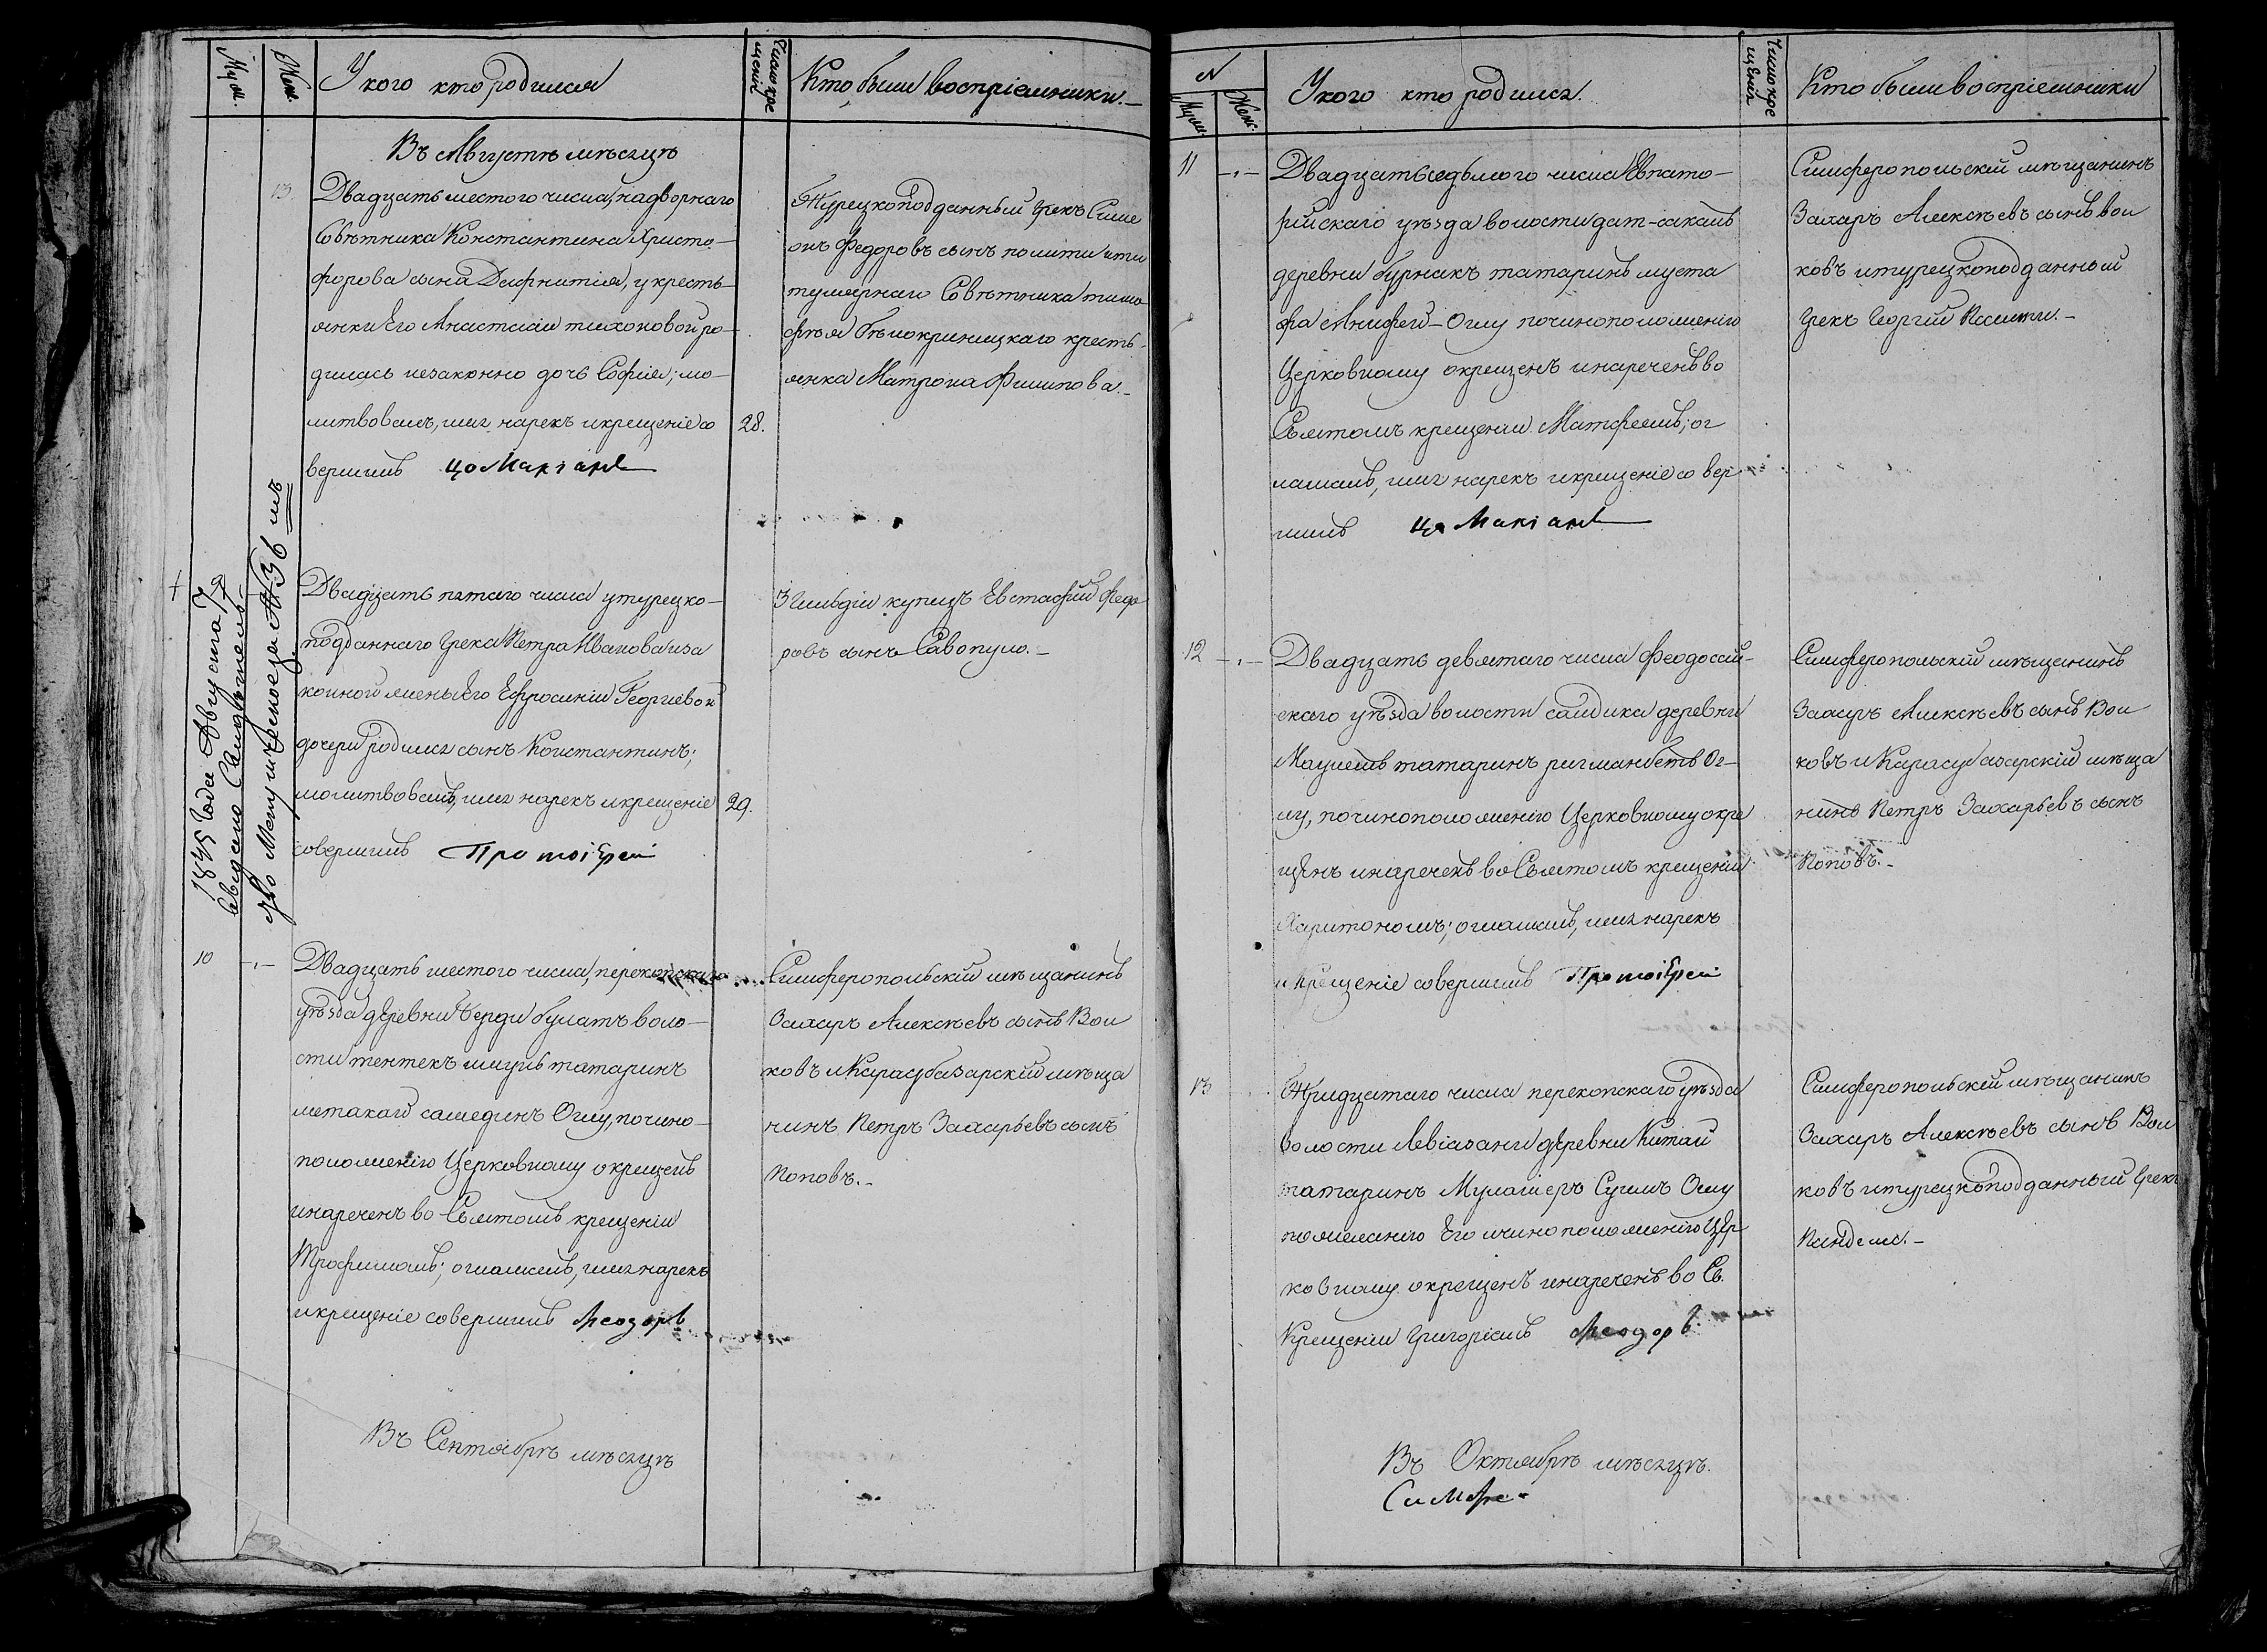 Муж.
Жен.
У кого кто родился
Число кре
щенія
Кто были воспріемники. –
Въ Августѣ мѣсяцѣ
13
Двадцать шестого числа, надворнаго
Совѣтника Константина Христо–
форова сына у кресть–
янки Его Анастасіи Тихоновой ро–
дилась незаконно дочь Софія; мо–
литвовалъ, имя нарекъ и крещеніе со
вершилъ
28.
Турецкоподданный Грекъ Симе
онъ Федоровъ сынъ и ти
тулярнаго Совѣтника Тимо
фѣя Бѣлокриницкаго кресть–
янка Матрона Филипова. –
1845 года Августа 7 д
видѣтель–
ство за № 36 мъ
Двадцать пятаго числа у турецко–
подданнаго Грека Петра Иванова и за
конной жены Его Ефросиніи Георгіевой
дочери родился сынъ Константинъ;
молитвовалъ, имя нарекъ и крещеніе
совершилъ Протоіерей
29.
3 Гильдіи купецъ Евстафій Федо
ровъ сынъ Савопуло. –
10 –„–
Двадцать шестого числа, перекопскаго
уѣзда деревни Берди булатъ воло–
сти татаринъ
Оглу, по чино–
положенію Церковному окрещенъ
и нареченъ во Святомъ крещеніи
Трофимомъ; оглашалъ, имя нарекъ
и крещеніе совершилъ Ѳеодоръ
Симферопольскій мѣщанинъ
Захаръ Алексѣевъ сынъ Вол
ковъ и Карасубазарскій мѣща
нинъ Петръ Захарьевъ сынъ
Поповъ. –
Въ Сентябрѣ мѣсяцѣ
N
Муж.
Жен.
У кого кто родился.
Число кре
щенія
Кто были воспріемники
11 –„–
Двадцать седьмого числа Евпато–
рійскаго уѣзда волости
деревни бурнакъ татаринъ муста
фа Оглу по чиноположенію
Церковному окрещенъ и нареченъ во
Святомъ крещеніи Матфеемъ; ог
лашалъ, имя нарекъ и крещеніе со вер
шилъ
Симферопольскій мѣщанинъ
Захаръ Алексѣевъ сынъ вол
ковъ и турецкоподданный
Грекъ Георгій
12 –„–
Двадцать девятаго числа Феодосій–
скаго уѣзда волости деревни
татаринъ Ог–
лу, по чиноположенію Церковному окре
щенъ и нареченъ во Святомъ крещеніи
Харитономъ; оглашалъ, имя нарекъ
и Крещеніе совершилъ Протоіерей
Симферопольскій мѣщанинъ
Захаръ Алексѣевъ сынъ Вол
ковъ и Карасубазарскій мѣща
нинъ Петръ Захарьевъ сынъ
Поповъ. –
13
Тридцатаго числа перекопскаго уѣзда
волости деревни Китай
татаринъ Оглу
по желанію Его и чиноположенію Цер
ковному окрещенъ и нареченъ во Св.
Крещеніи Григоріемъ Ѳеодоръ
Симферопольскій мѣщанинъ
Захаръ Алексѣевъ сынъ Вол
ковъ и турецкоподданный Грекъ
Въ Октябрѣ мѣсяцѣ.